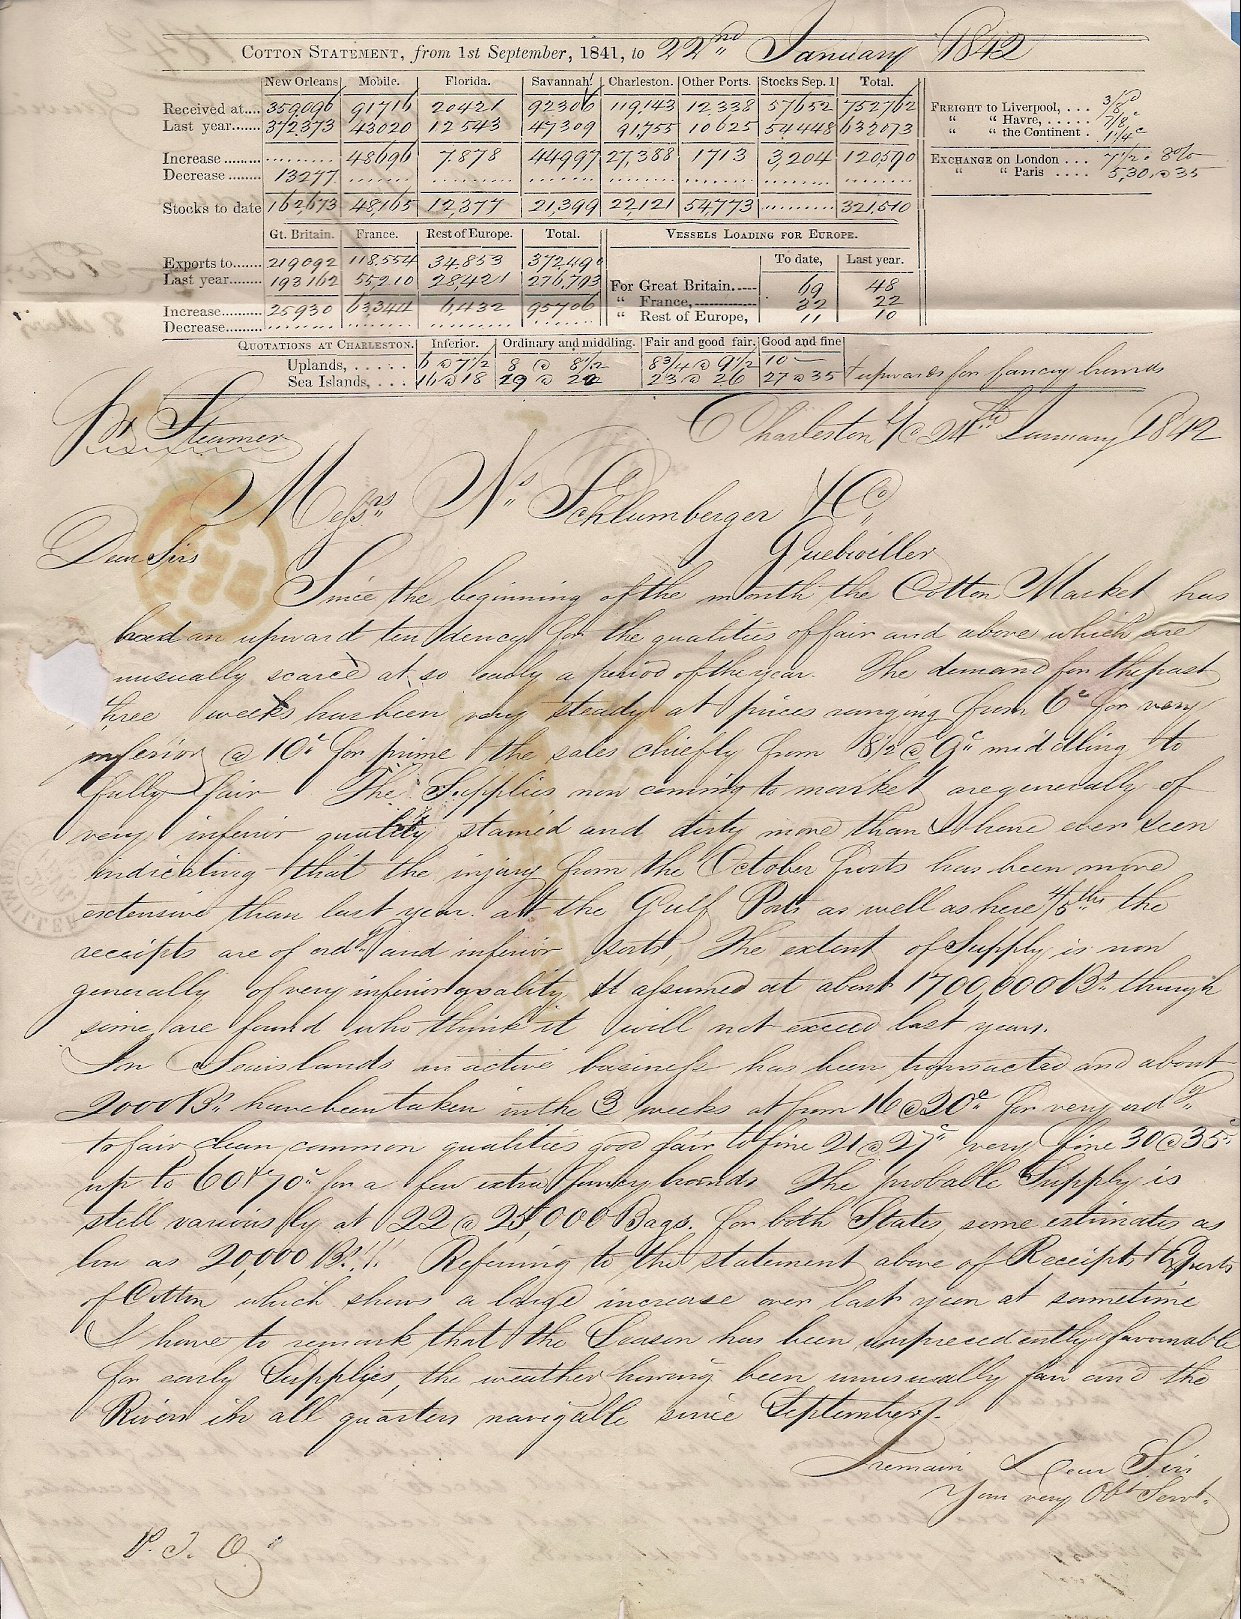 COTTON STATEMENT, from 1st September, 1841, to 22nd January 1842
New Orleans Mobile. Florida. Savannah. Charleston. Other Ports. Stocks Sep. 1 Total.
Received at.... 359,096 91716 20421 92306 119,143 12,338 57652 752762
Last year...... 372,373 43020 12543 47309 91,755 10625 54448 632073
Increase ......... .......... 48696 7,878 44997 27,388 1713 3,204 120,590
Decrease ........ 13277 ....... ....... ....... ....... ....... ....... .......
Stocks to date 162,673 48,165 12,377 21,399 22,121 54,773 ......... 321,510
FREIGHT to Liverpool, . . . 3/8d
“ “ Havre, . . . . . 7/8c
“ “ the Continent . 1 1/4c
EXCHANGE on London . . . 7 1/2 a 8%
“ “ Paris . . . . 5,30 @ 35
Gt. Britain. France. Rest of Europe. Total.
Exports to...... 219092 118,554 34,853 372,490
Last year........ 193162 55210 28,421 276,793
Increase......... 25930 63,344 6,432 95706
Decrease......... ....... ....... ....... .......
VESSELS LOADING FOR EUROPE.
To date, Last year.
For Great Britain..... 69 48
“ France,------------- 32 22
“ Rest of Europe, 11 10
QUOTATIONS AT CHARLESTON. Inferior. Ordinary and middling. Fair and good fair. Good and fine
Uplands, . . . . . 6 @ 7 1/2 8 @ 8 1/2 8 3/4 @ 9 1/2 10 —
Sea Islands, . . . . 16 @ 18 19 @ 22 23 @ 26 27 @ 35 & upwards for fancy brands
Pr Steamer
Charleston S/C 24th January 1842
Messrs Ns Schlumberger & Co
Guebwiller
Dear Sirs
Since the beginning of the month the Cotton Market has
had an upward tendency for the qualities of fair and above which are
unusually scarce at so early a period of the year. The demand for the past
three weeks has been very steady at prices ranging from 6c for very
inferior @ 10c for prime the sales chiefly from 8 1/2 @ 9c middling to
fully fair. The Supplies now coming to market are generally of
very inferior quality stained and dirty more than I have ever seen
indicating that the injury from the October frosts has been more
extensive than last year. at the Gulf Ports as well as here 4/5ths the
receipts are of ordy and inferior sorts, The extent of Supply is now
generally of very inferior quality It assumed at about 1700,000 Bs though
some are found who think it will not exceed last years.
In Sea islands an active business has been transacted and about
2000 Bs have been taken in the 3 weeks at from 16 @ 20c for very ordy
to fair clean common qualities good fair to fine 21 @ 27c very fine 30 @ 35c
up to 60 & 70c for a few extra fancy brands The probable Supply is
still variously at 22 @ 25,000 Bags. for both States, some estimates as
low as 20,000 Bs.!! Referring to the statement above of Receipts & Exports
of Cotton which shows a large increase over last year at sametime
I have to remark that the Season has been unprecedently favourable
for early Supplies, the weather having been unusually fair and the
Rivers in all quarters navigable since September.
I remain Dear Sirs
Your very Obt Servt.
P. T. O.